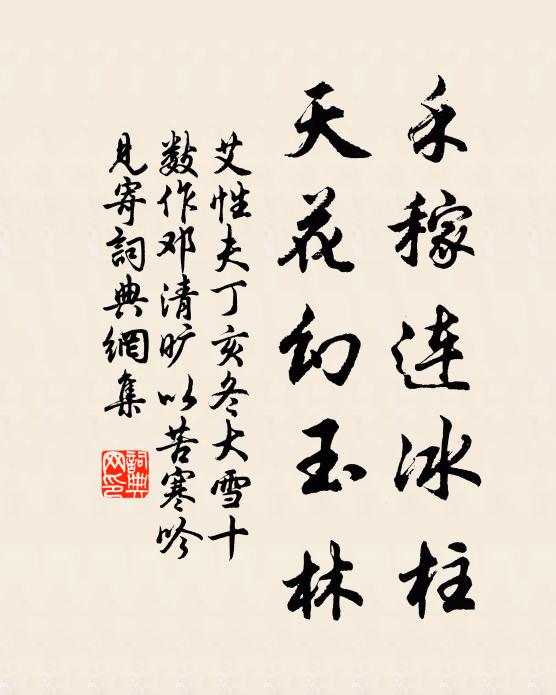 禾稼连冰柱
天花幻玉林
艾性夫丁亥冬大雪十
数作邓清旷以苦寒吟
见寄詞典網集
詞典
网印